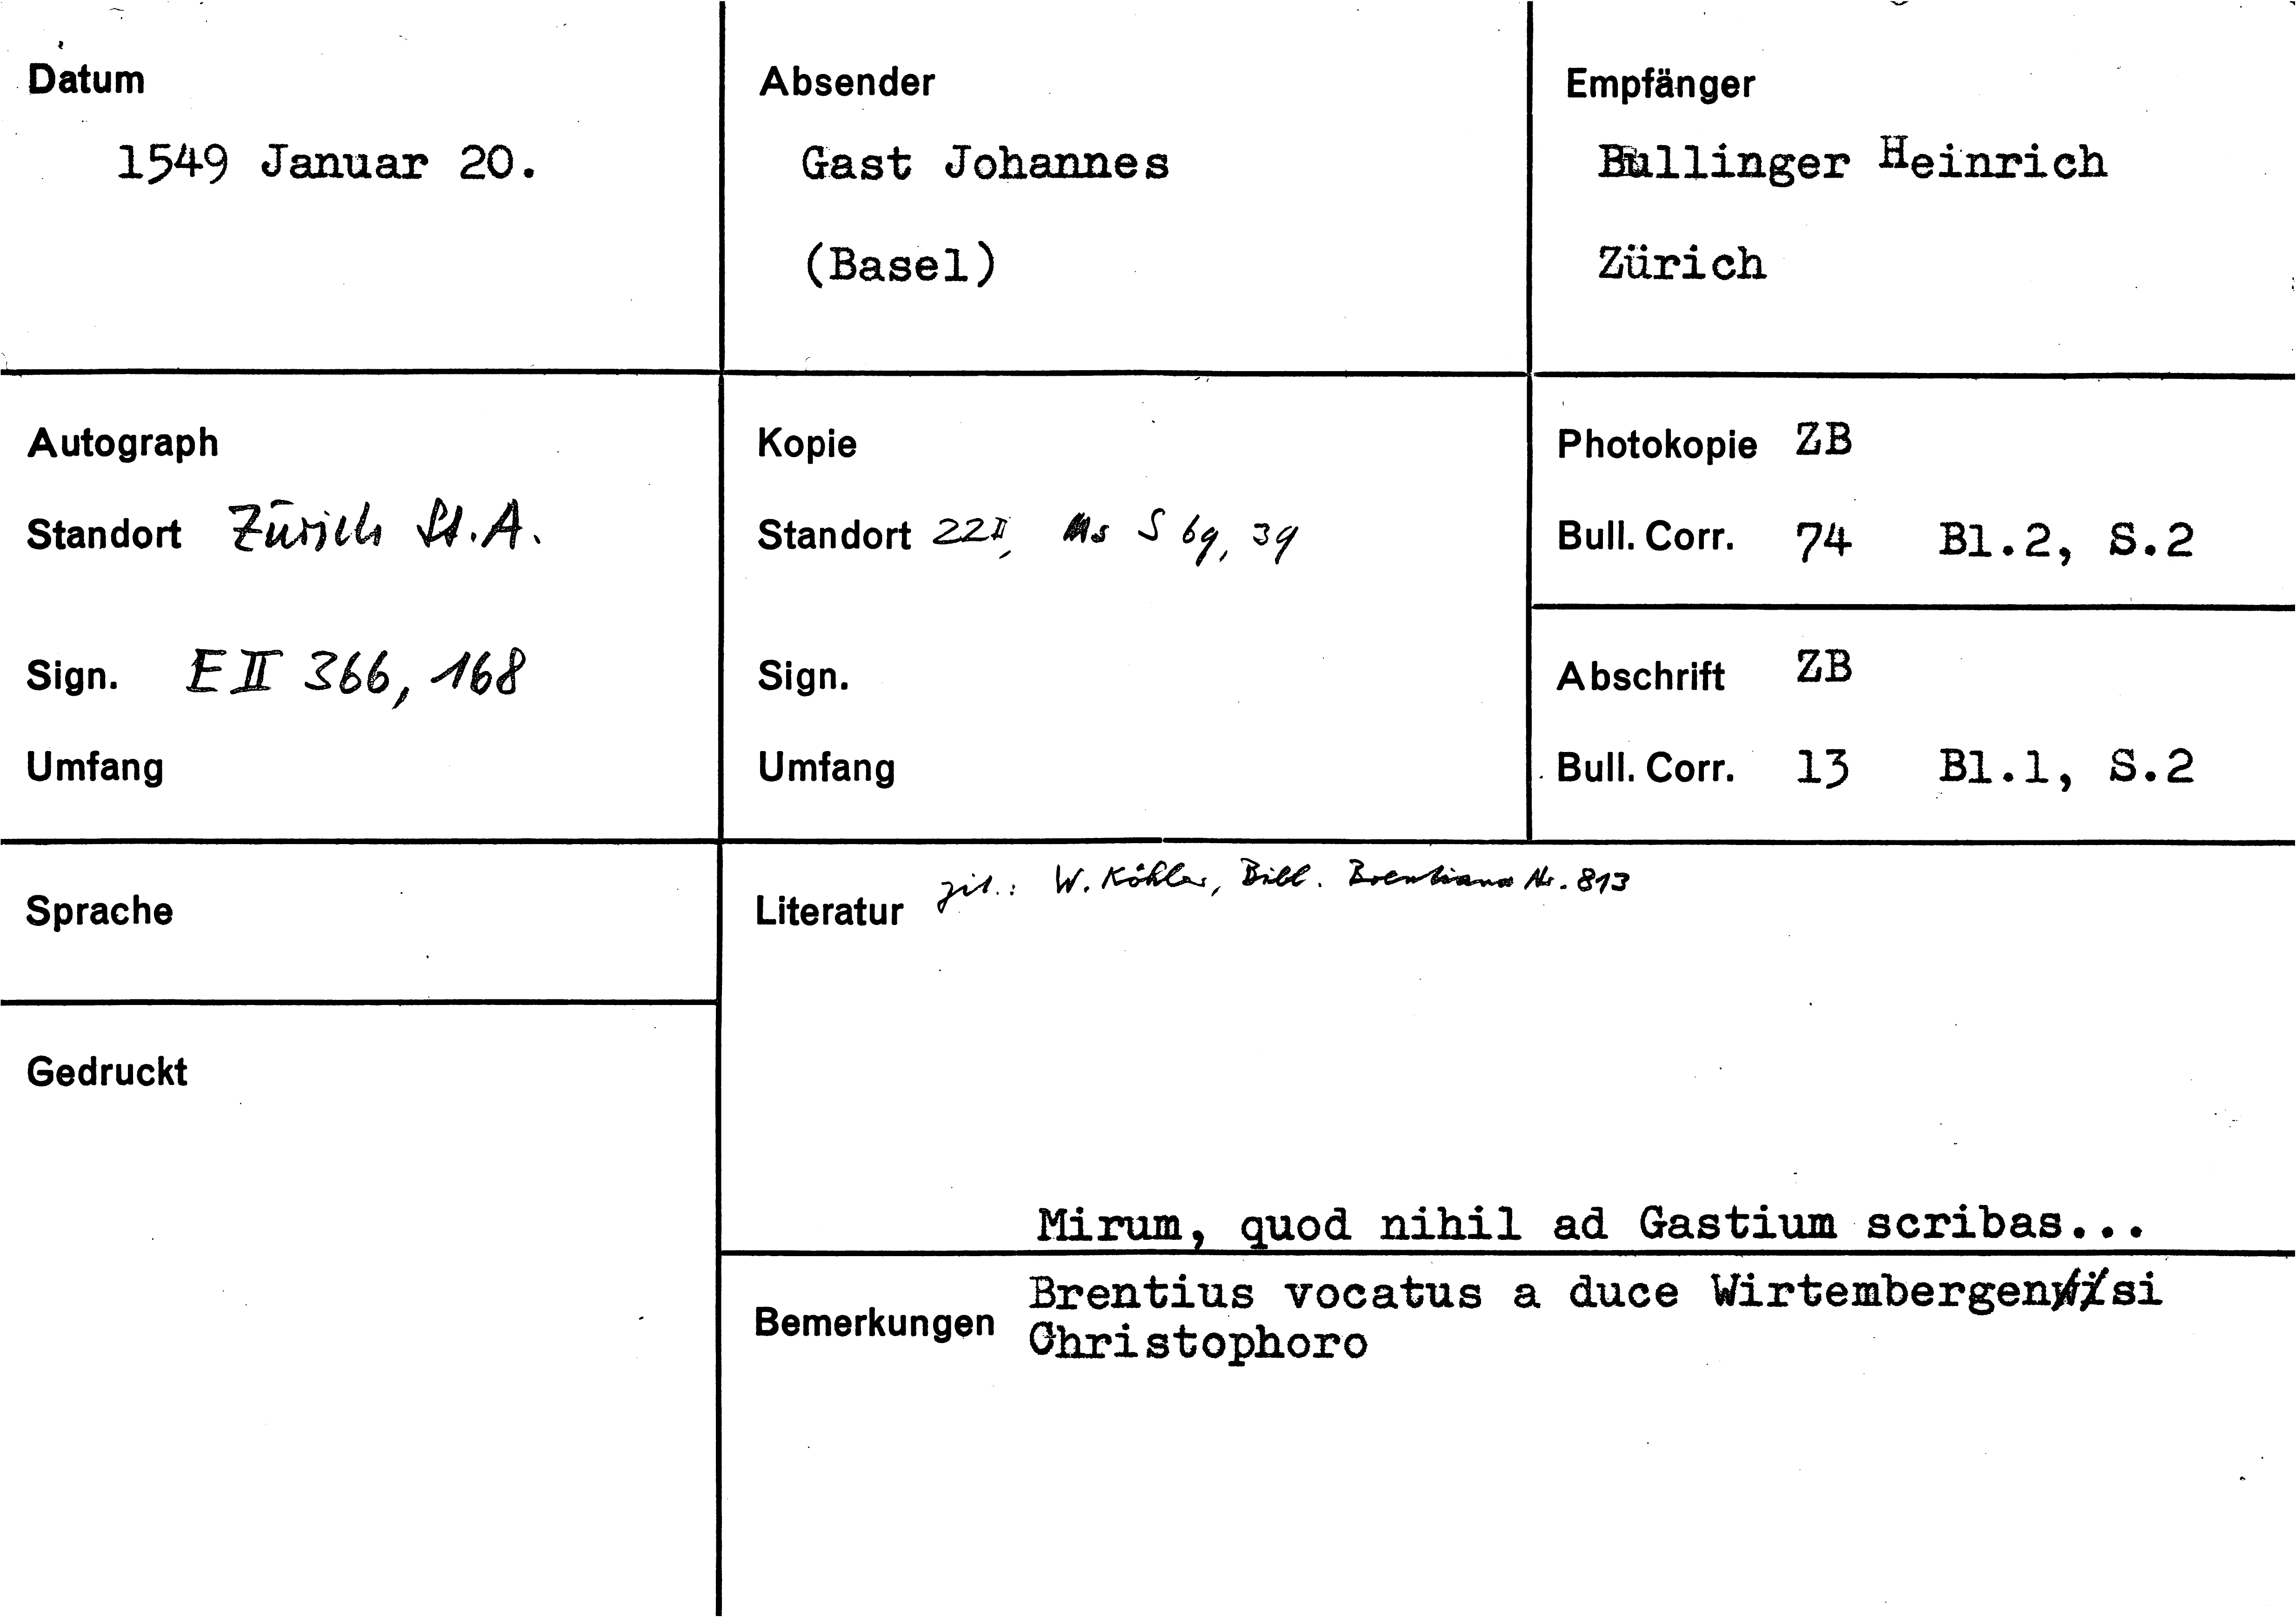 Datum
1549 Januar 20.
Absender
Gast Johannes
(Basel)
Empfänger
Bullinger Heinrich
Zürich
Autograph
Standort Zürich St.A.
Sign. E II 366, 168
Umfang
Kopie
Standort ZZB, Ms S 69, 39
Sign.
Umfang
Photokopie ZB
Bull. Corr. 74 Bl.2, S.2
Abschrift ZB
Bull. Corr. 13 Bl.1, S.2
Sprache
Gedruckt
Literatur zit.: W. Köhler, Bibl. Brentiana Nr. 813
Mirum, quod nihil ad Gastium scribas...
Bemerkungen
Brentius vocatus a duce Wirtembergensi
Christophoro